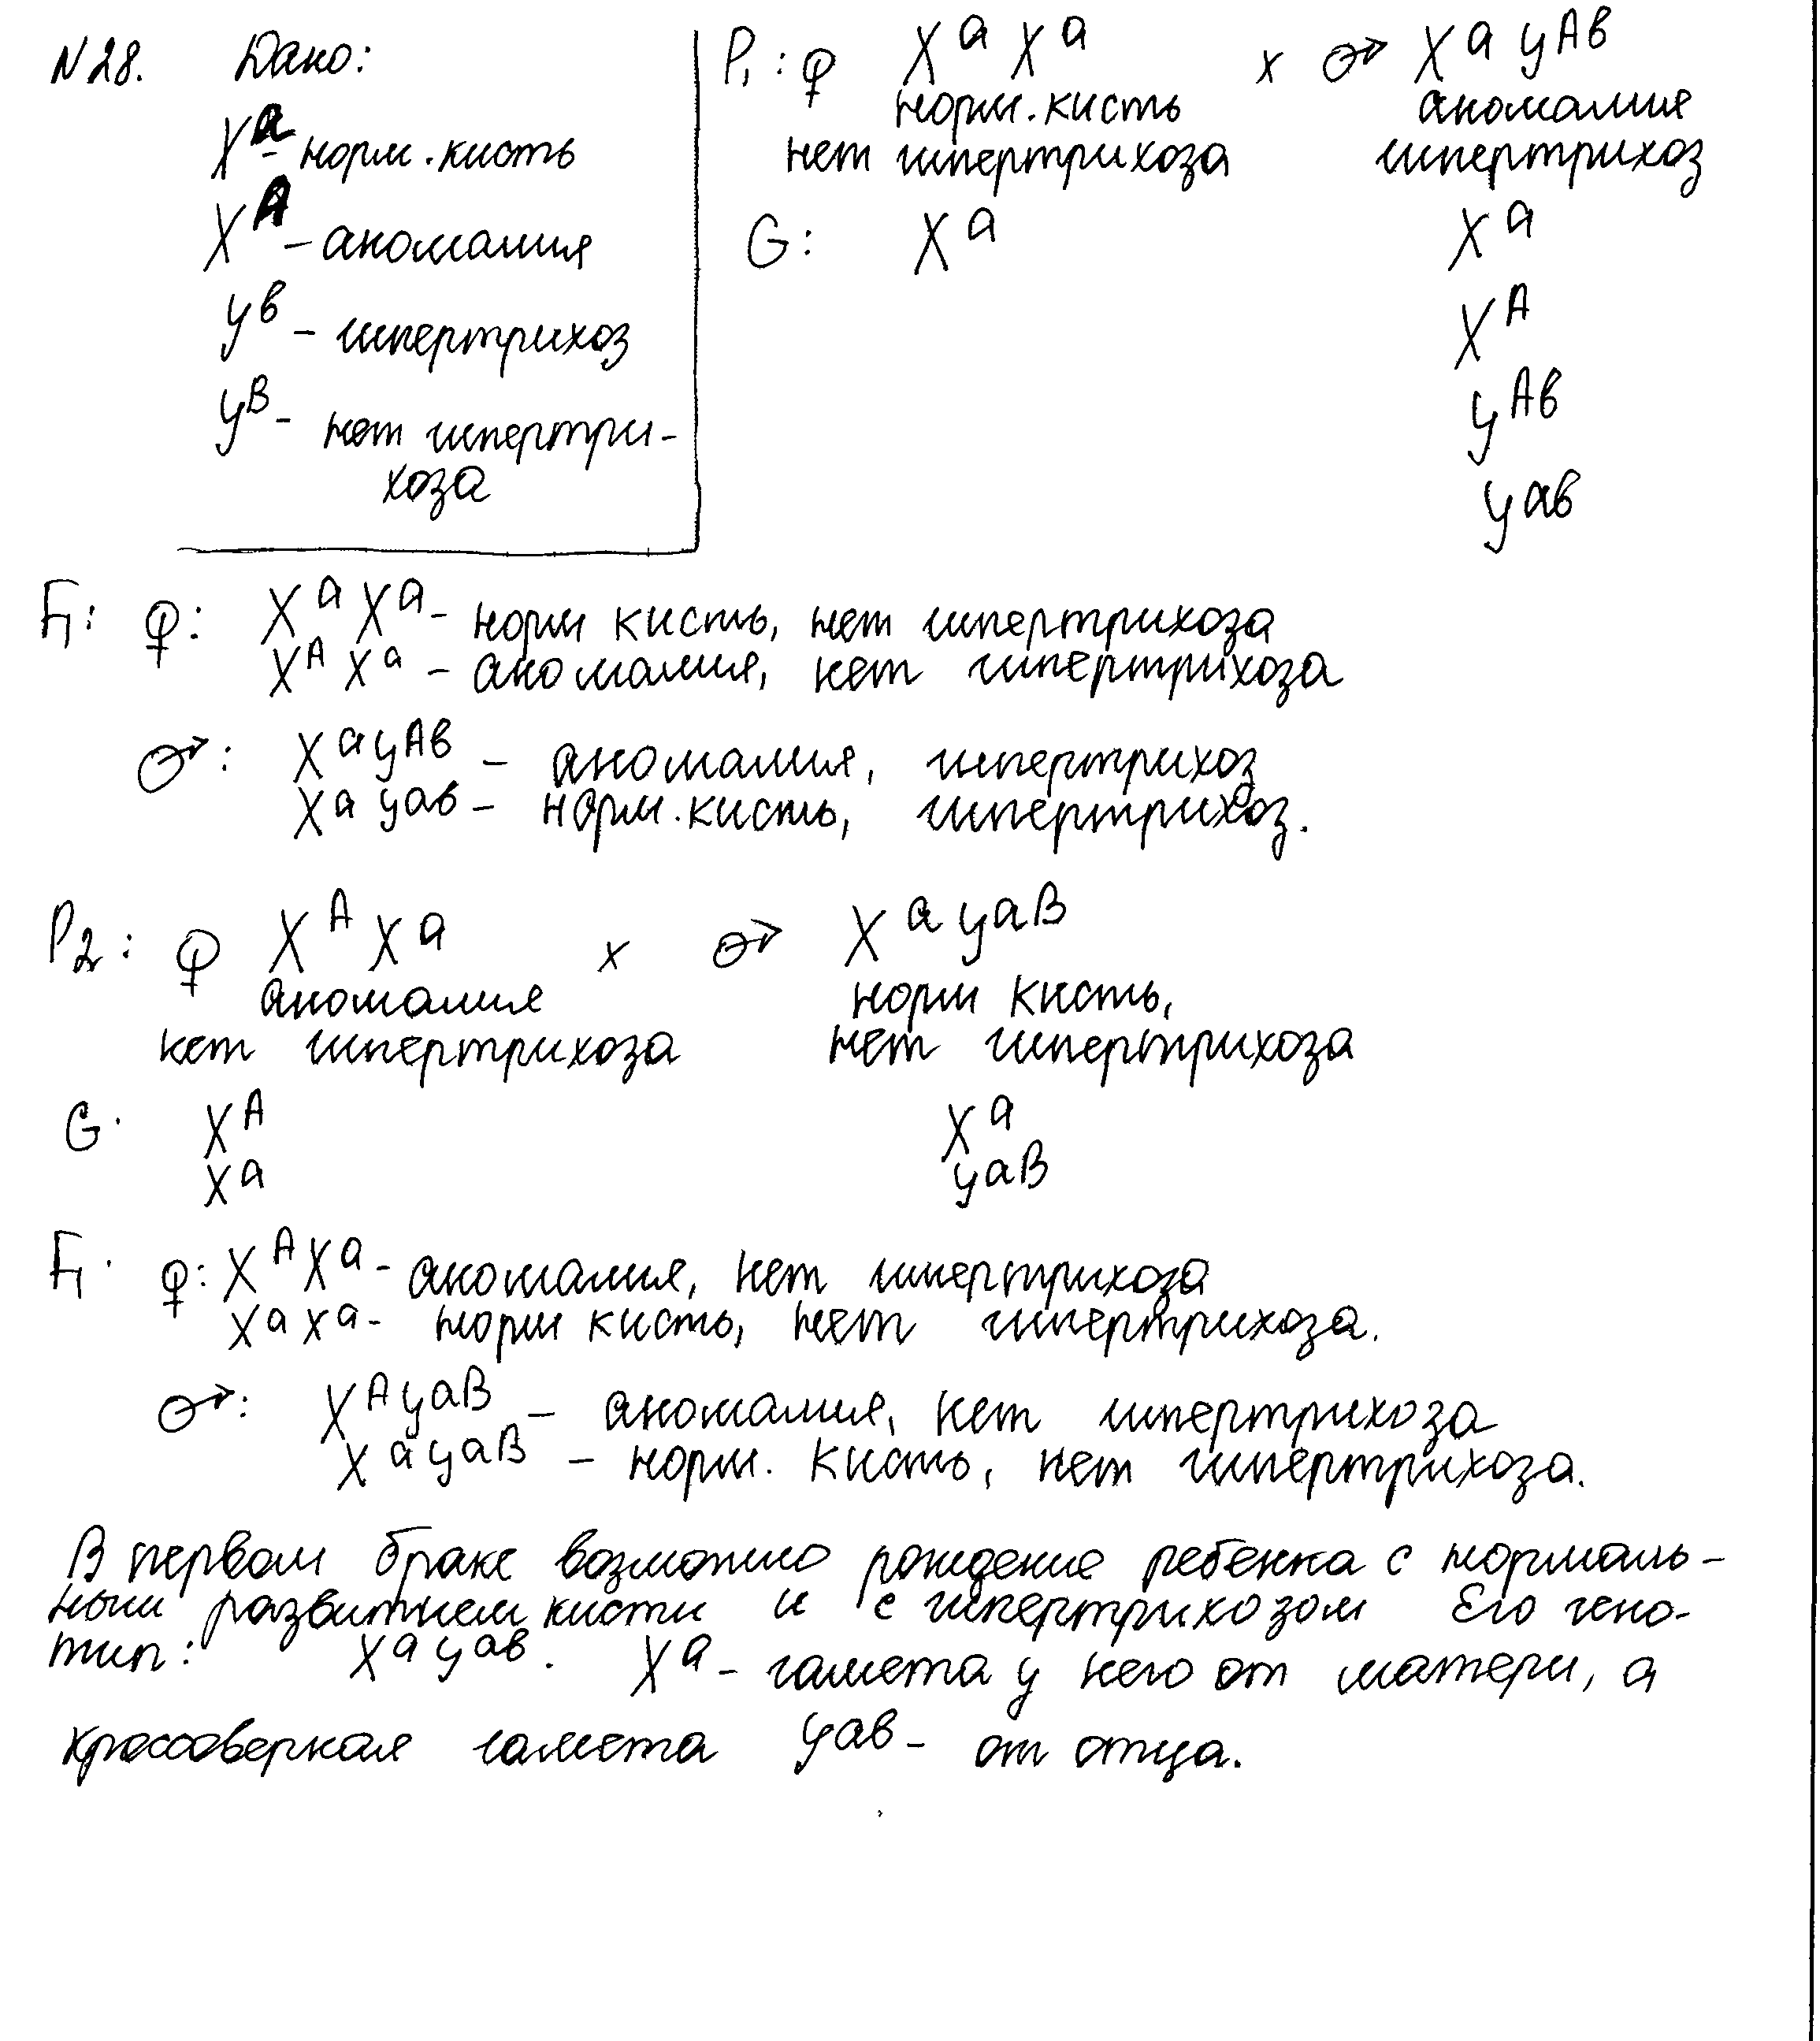 N28. Дано:
X^a - норм. кисть
X^A - аномалия
y^в - гипертрихоз
y^B - нет гипертри-
хоза
P1: ♀ X^a X^a x ♂ X^a y^Aв
норм. кисть аномалия
нет гипертрихоза гипертрихоз
G: X^a X^a
X^A
y^Aв
y^ав
F1: ♀: X^a X^a - норм кисть, нет гипертрихоза
X^A X^a - аномалия, нет гипертрихоза
♂: X^a y^Aв - аномалия, гипертрихоз
X^a y^ав - норм. кисть, гипертрихоз.
P2: ♀ X^A X^a x ♂ X^a y^aB
аномалия норм кисть,
нет гипертрихоза нет гипертрихоза
G. X^A X^a
X^a y^aB
F1. ♀: X^A X^a - аномалия, нет гипертрихоза
X^a X^a - норм кисть, нет гипертрихоза.
♂: X^A y^aB - аномалия, нет гипертрихоза
X^a y^aB - норм. кисть, нет гипертрихоза.
В первом браке возможно рождение ребенка с нормаль-
ным развитием кисти и с гипертрихозом Его гено-
тип: X^a y^ав. X^a - гамета у него от матери, а
кроссоверная гамета y^ав - от отца.